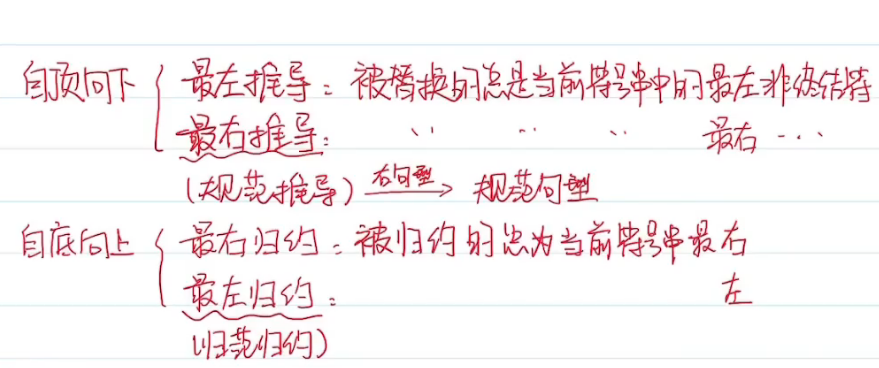 自顶向下 { 最左推导：被替换的总是当前符号串中的最左非终结符
最右推导： 〃 〃 〃 最右 ···
(规范推导) 右句型→ 规范句型
自底向上 { 最右归约：被归约的总为当前符号串最右
最左归约： 左
(归范归约)